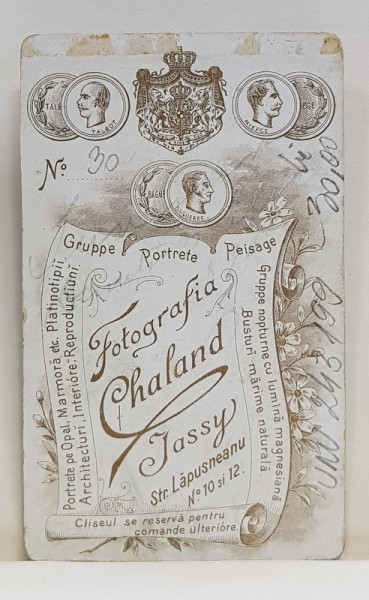 TALB
TALBOT
NIEPCE
PCE
No 30
DAGUE
DAGUERRE
Gruppe Portrete Peisage
Portrete pe Opal, Marmoră, etc. Platinotipii.
Architecturi, Interióre, Reproducțiuni.
Fotografia
Chaland
Jassy
Str. Lăpușneanu
No 10 și 12.
Gruppe nopturne cu lumină magnesiană
Busturi mărime naturală
Clișeul se reservă pentru
comande ulterióre.
Vi 30,00